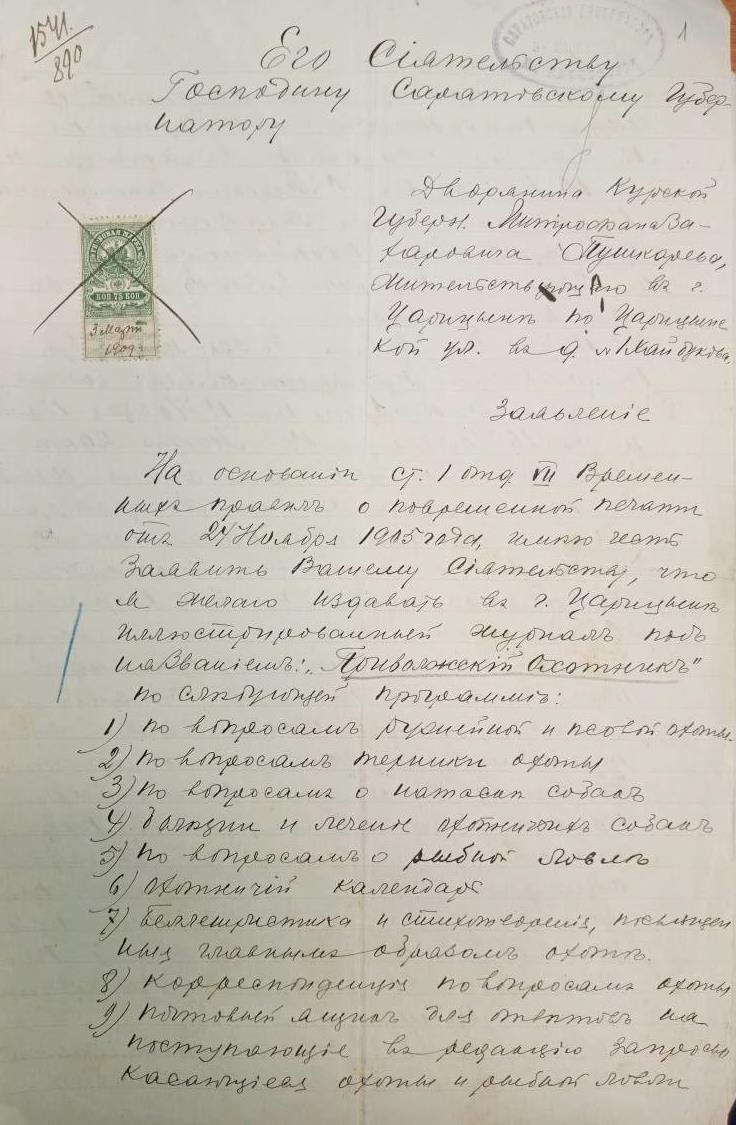 1541.
890
1
САРАТОВСКАЯ
Его Сіятельству
Господину Саратовскому Губер-
натору
Дворянина Курской
Губерн. Митрофана За-
харовича Пушкарева,
жительствующаго въ г.
Царицынѣ по Царицынс
кой ул. въ д. №1 Хайбукова.
КОП 75 КОП
3 Марта
1909
Заявленіе
На основаніи ст. 1 отд VII Времен-
ныхъ правилъ о повременной печати
отъ 24 Ноября 1905 года, имѣю честь
Заявить Вашему Сіятельству, что
я желаю издавать въ г. Царицынѣ
иллюстрированный журналъ подъ
названіемъ: „Приволжскій Охотникъ"
по слѣдующей программѣ:
1) по вопросамъ ружейной и псовой охоты.
2) по вопросамъ техники охоты
3) по вопросамъ о натаскѣ собакъ
4) болѣзни и леченіе охотничьихъ собакъ
5) по вопросамъ о рыбной ловлѣ
6) охотничій календарь
7) беллетристика и стихотворенія, посвящен
ныя главнымъ образомъ охотѣ.
8) корреспонденція по вопросамъ охоты
9) почтовый ящикъ для отвѣтовъ на
поступающіе въ редакцію запросы
касающіеся охоты и рыбной ловли